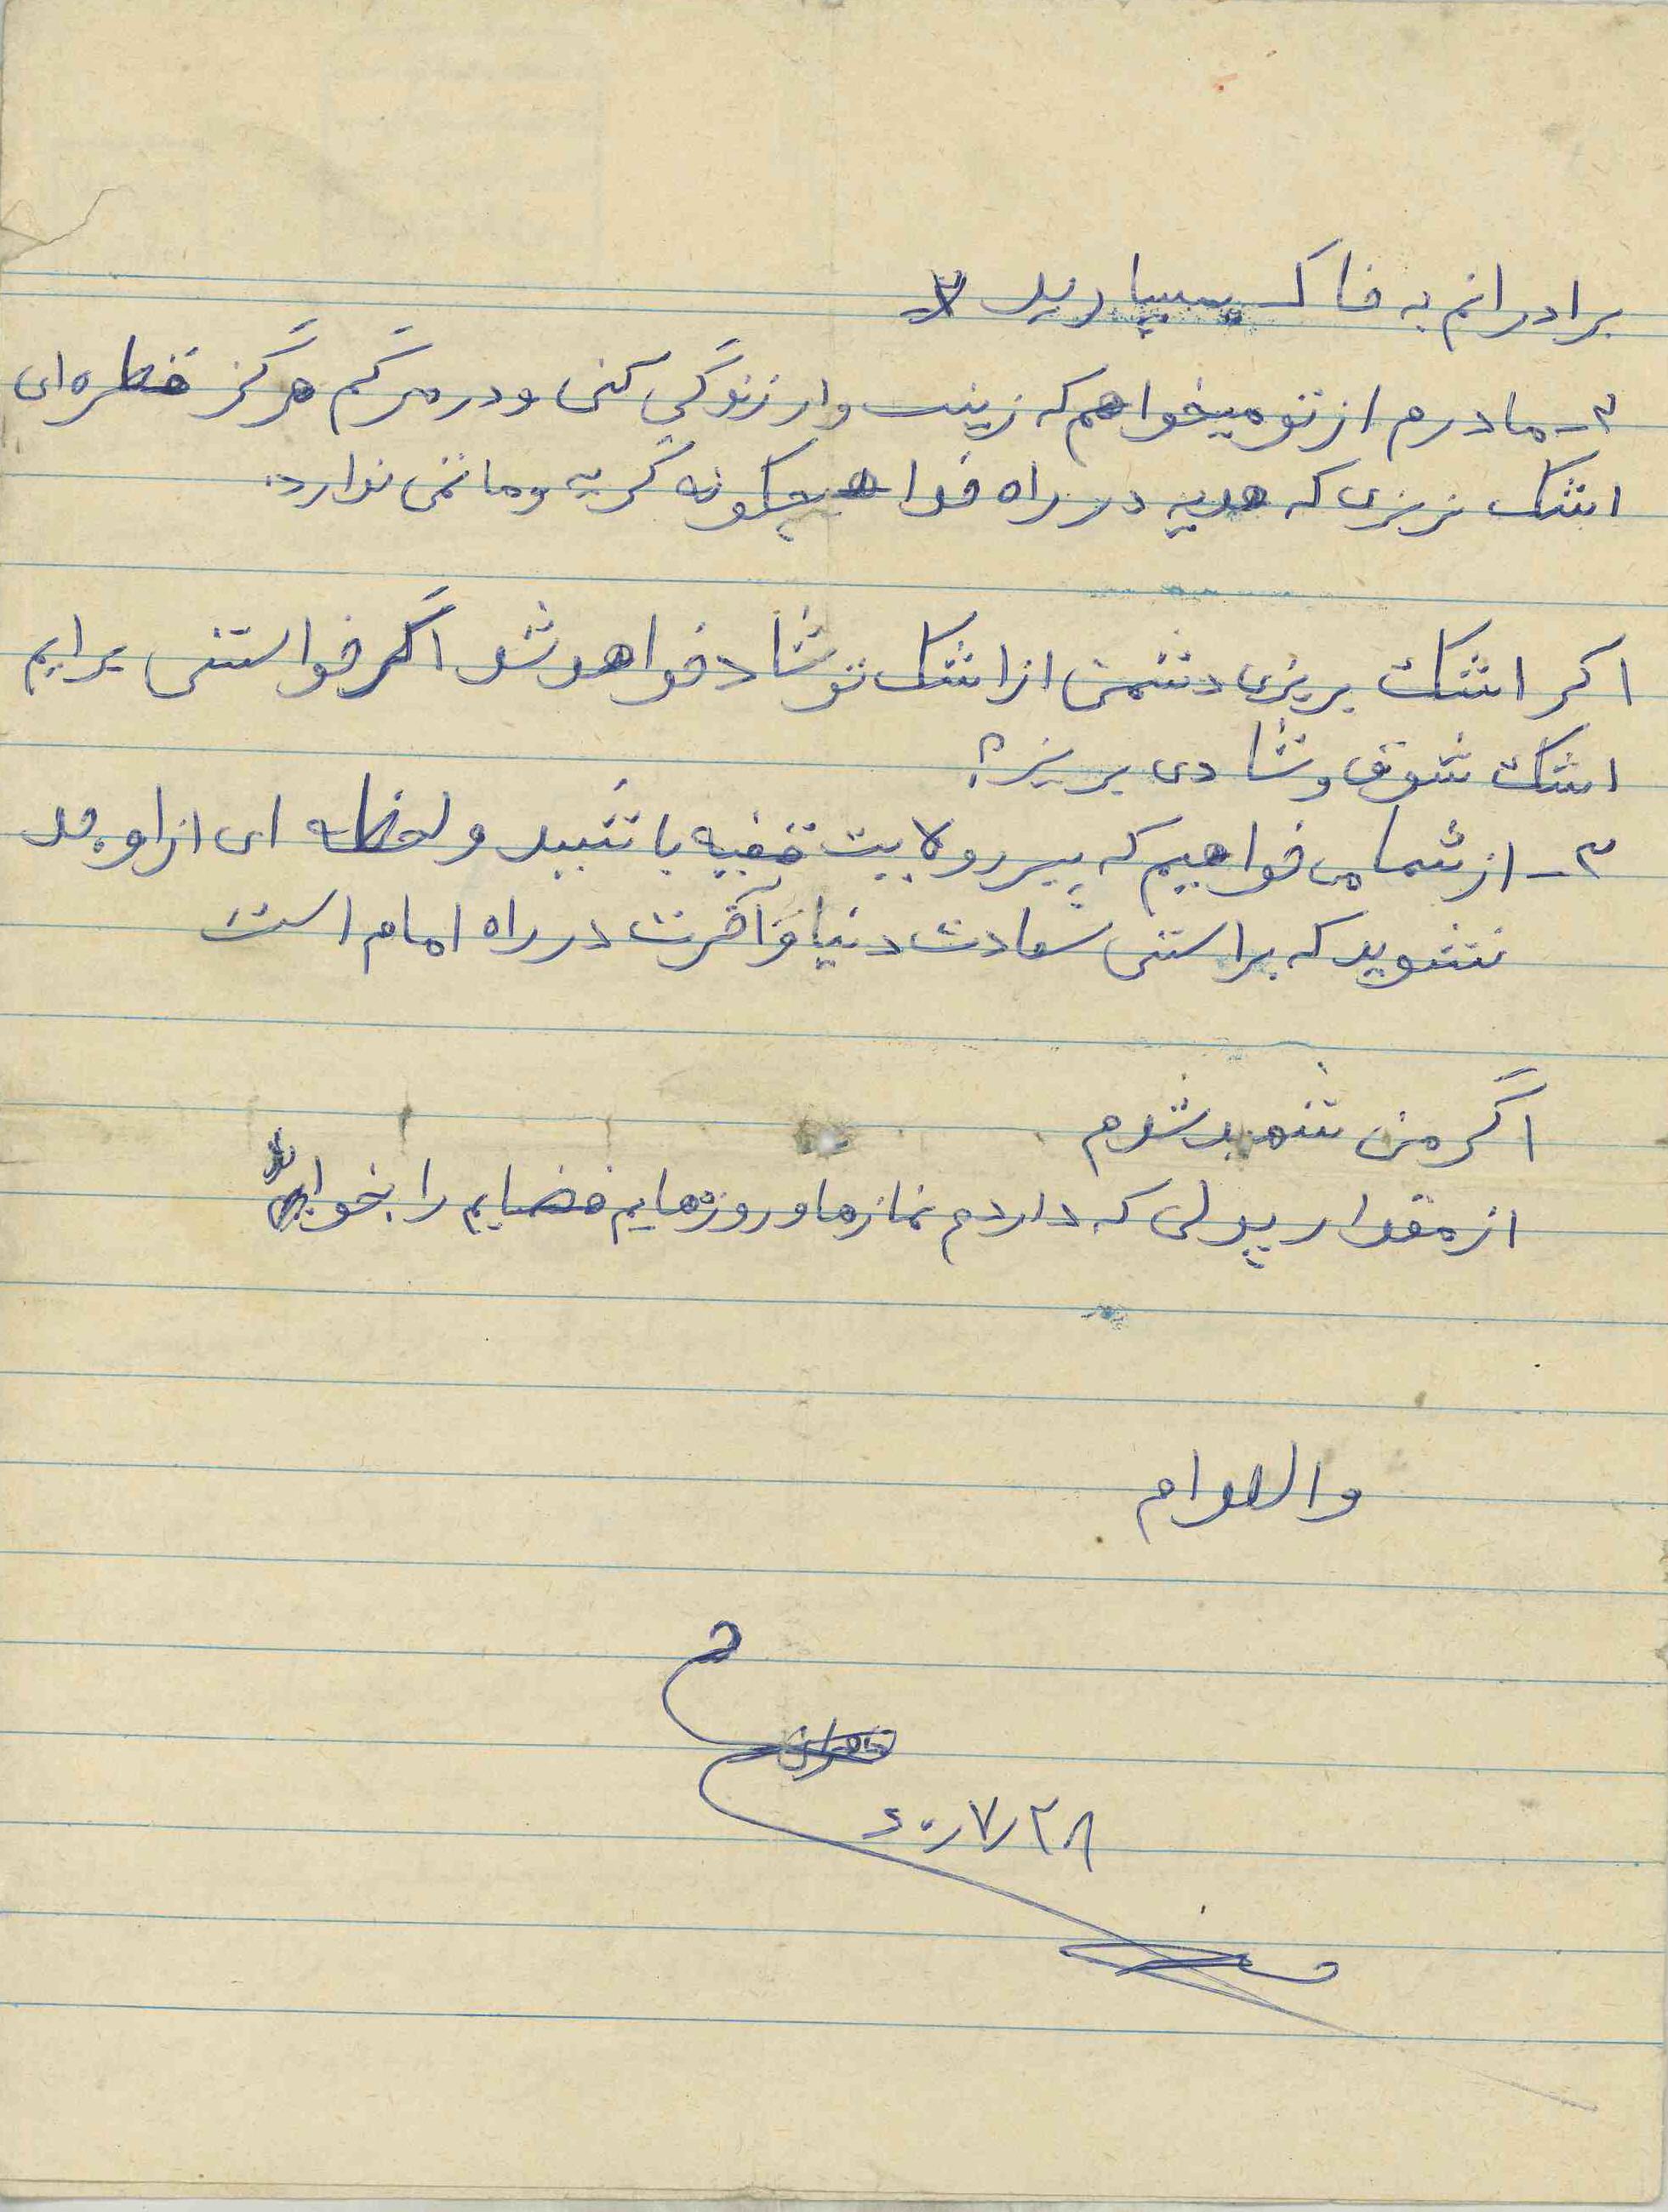 برادرانم به خاک بسپارید
۲- مادرم از تو میخواهم که زینب وار زندگی کنی و در مرگم هرگز قطره ای
اشک نریزی که هدیه در راه خدا هیچگونه گریه و ماتمی ندارد.
اگر اشک بریزی دشمن از اشک تو شاد خواهد شد اگر خواستی برایم
اشک شوق و شادی بریز؟
۳- از شما می خواهیم که پیرو ولایت فقیه باشید و لحظه ای از او جد
نشوید که براستی سعادت دنیا و آخرت در راه امام است
اگر من شهید شدم
از مقدار پولی که داردم نمازها و روزه هایم قضایم را بخواند
والسلام
۶۰/۷/۲۸